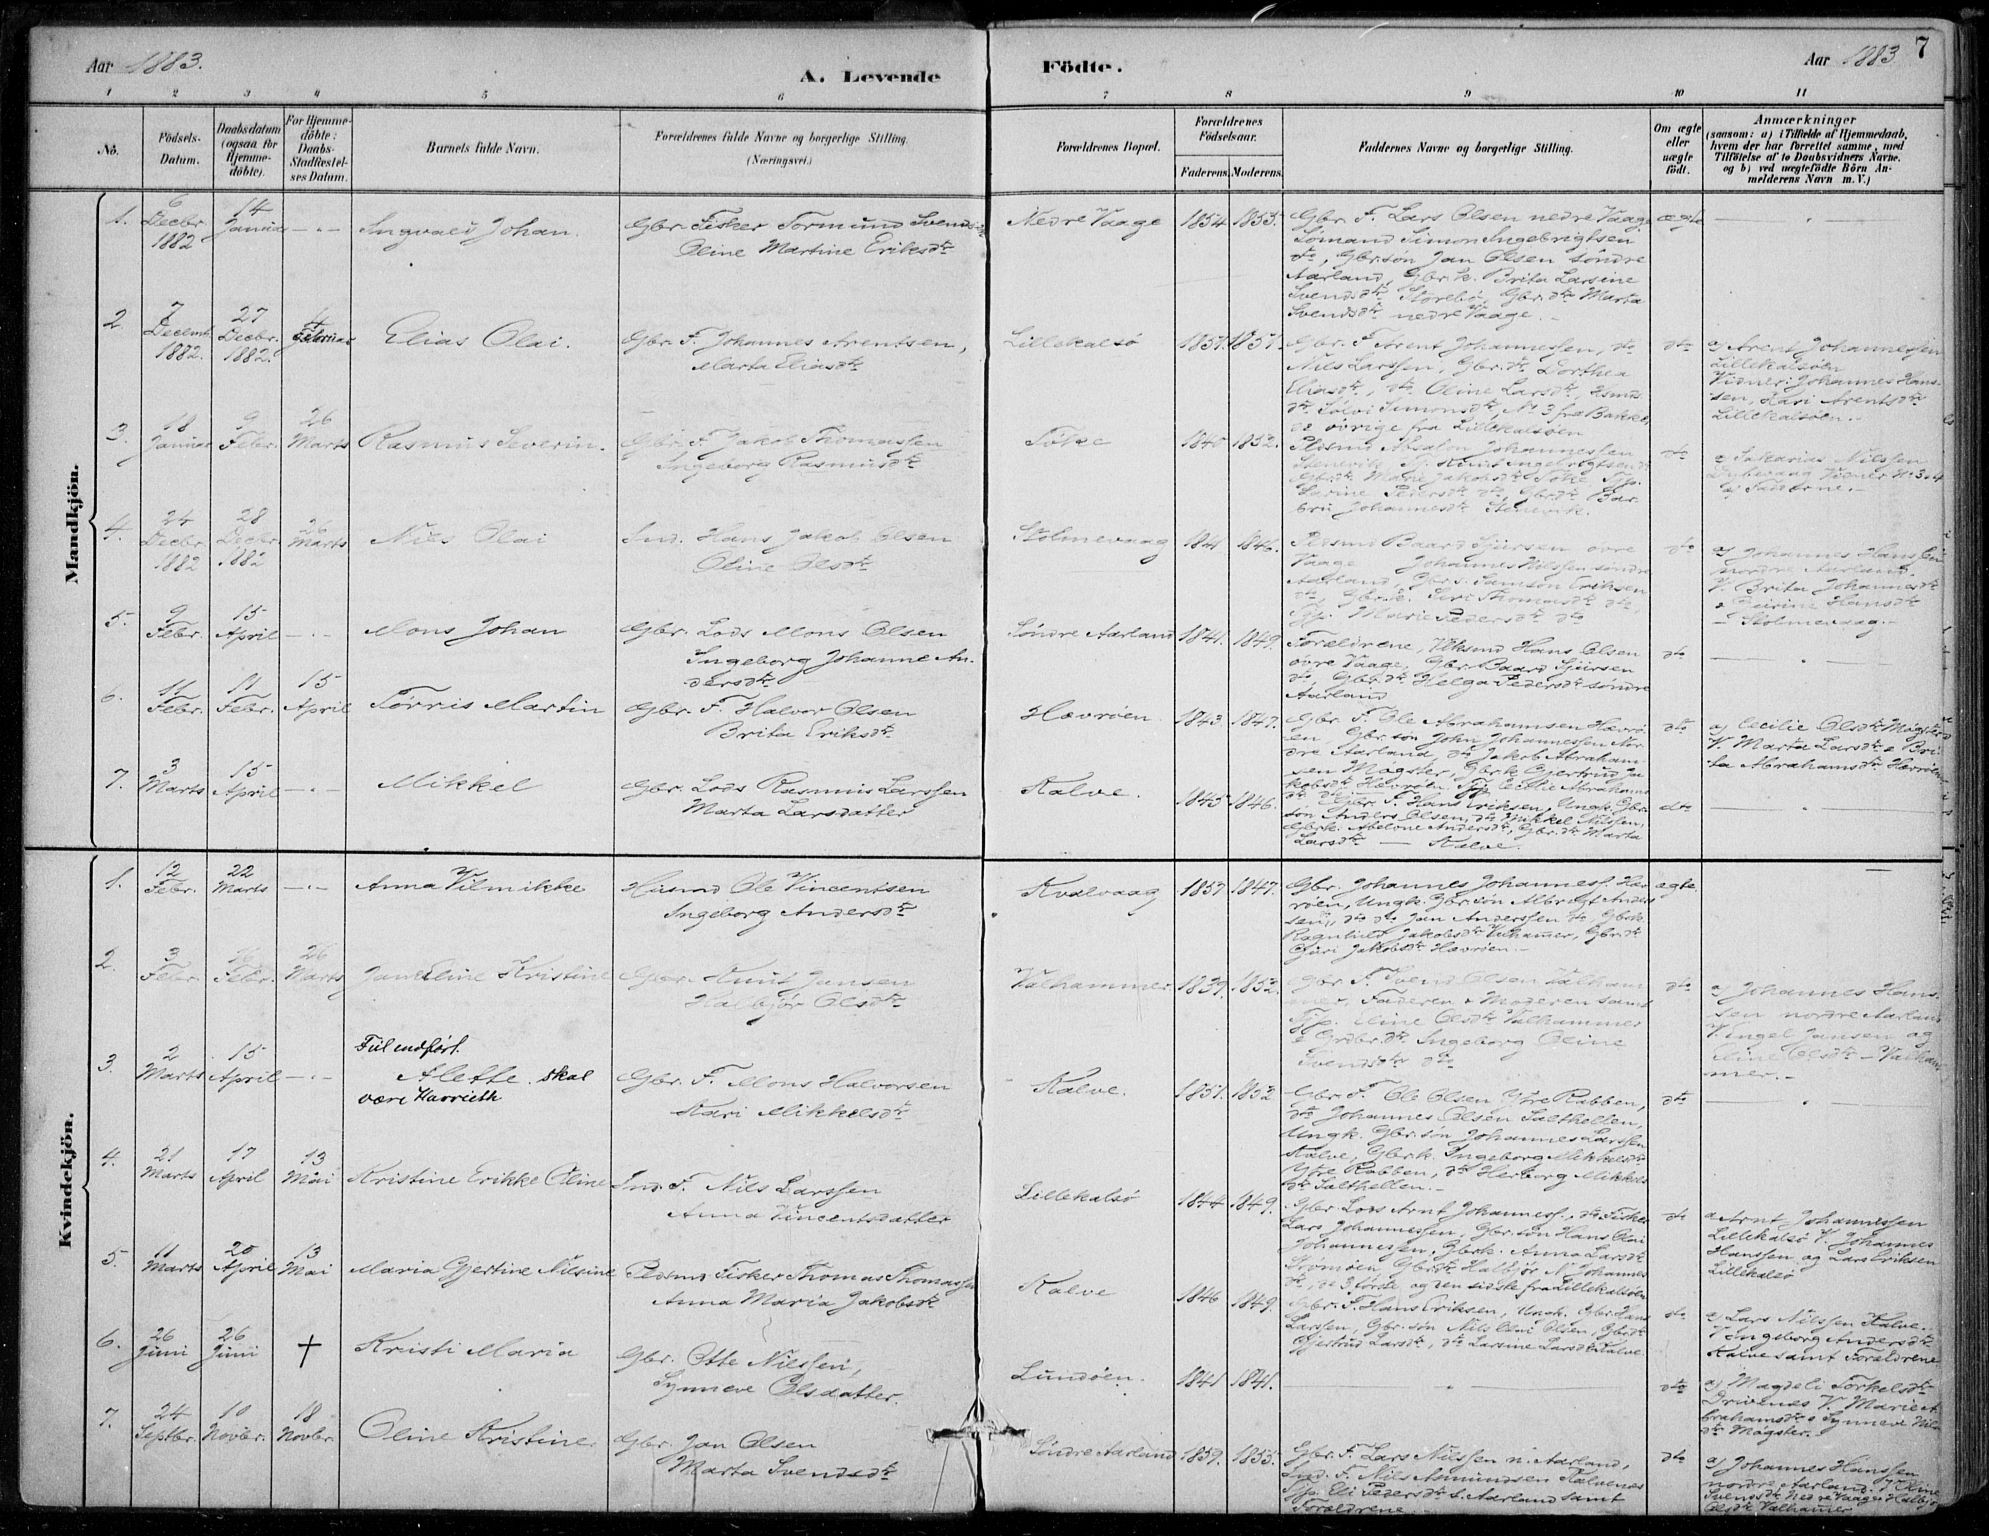 Aar 1883.
A. Levende
Födte.
Aar 1883
7
1 2 3 4 5 6 7 8 9 10 11
No.
Födsels-
Datum.
Daabsdatum
(ogsaa for
Hjemme-
döbte).
For Hjemme-
döbte:
Daabs-
Stadfæstel-
ses Datum.
Barnets fulde Navn.
Forældrenes fulde Navne og borgerlige Stilling.
(Næringsvei.)
Forældrenes Bopæl.
Forældrenes
Födselsaar.
Faderens. Moderens.
Faddernes Navne og borgerlige Stilling.
Om ægte
eller
uægte
født.
Anmærkninger
(saasom: a) i Tilfælde af Hjemmedaab,
hvem der har forrettet samme, med
Tilföielse af to Daabsvidners Navne.
og b) ved uægtefödte Börn An-
melderens Navn m. V.)
Mandkjön.
1. 6 Decbr. 1882 14 Januar Ingvald Johan.
Gbr. Fisker Tormund
Oline Martine Eriksdtr
Nedre Vaage 1854 1853.
Gbr. F. Lars Olsen nedre Vaage
Sømand Simon Ingebrigtsen
dto, Gbr.søn Jan Olsen søndre
Aarland, Gbr.k. Brita Larsine
Svendsdtr Storebø, Gbr.dtr Marta
Svendsdtr nedre Vaage.
ægte
2 7 Decemb. 1882. 27 Decbr. 1882. 4 Februar Elias Olai.
Gbr. F. Johannes Arentsen,
Marta Eliasdtr
Lillekalsø 1857. 1857.
Gbr. F. Arent Johannessen, dto
Nils Larssen, Gbr.dtr Dorthea
Eliasdtr, dtr Oline Larsdtr, Husmds
dtr Sølvi Simonsdtr, No 3 fra Bakke,
de øvrige fra Lillekalsøen
dto
a) Arent Johannessen
Lillekalsøen
Vidner: Johannes Hans-
sen, Kari Arentsdtr
Lillekalsøen.
3. 18 Januar 9 Febr. 26 Marts Rasmus Severin.
Gbr. F. Jakob Thomassen
Ingeborg Rasmusdtr
Tøke 1840 1852.
Plsmd Absalon Johannessen
Stenevik
Gbr.dtr Marie Jakobsdtr Tøke
Larine Pedersdtr dto, Gbr.dtr Bar-
bru Johannesdtr Stenevik.
dto
a) Sakarias Nilssen
4. 24 Decbr. 1882 28 Decbr. 1882 26 Marts Nils Olai
Ind. Hans Jakob Olsen
Oline Olsdtr
Stolmevaag 1841 1846.
Plsmd Baard Sjursen øvre
Vaage Johannes Nilssen søndre
Aarland, Gbr.s. Samson Eriksen
dto, Gbr.k. Siri Thomasdtr dto,
Pige Marie Pedersdtr dto
dto
a) Johannes Hanssen
nordre Aarland.
V. Brita Johannesdtr
Hansdtr
- Stolmevaag.
5. 9 Febr. 15 April Mons Johan
Gbr. Lods Mons Olsen
Ingeborg Johanne An-
dersdtr
Søndre Aarland 1841. 1849.
Forældrene, Hans Olsen
øvre Vaage, Gbr. Baard Sjursen
dto, Gbr.dtr Helga Pedersdtr søndre
Aarland
dto
6. 11 Febr. 11 Febr. 15 April Tørris Martin
Gbr. F. Halvor Olsen
Brita Eriksdtr
Hævrøen. 1843 1847.
Gbr. F. Ole Abrahamsen Hævrø-
en, Gbr.søn John Johannessen Nor-
dre Aarland, dto Jakob Abraham-
sen Møgster, Gbr.k. Gjertrud Ja-
kobsdtr Hævrøen, Pige Cecilie Abrahams
dtr dto
dto
a) Cecilie Olsdtr Møgster
V. Marta Larsdtr & Bri-
ta Abrahamsdtr Hævrøen
7. 3 Marts 15 April Mikkel
Gbr. Lods Rasmus Larssen
Marta Larsdatter
Kalve. 1845 1846.
Gbr. F. Hans Eriksen, Ungk. Gbr.
søn Anders Olsen, dto Mikkel Nilssen,
Gbr.k. Abelone Andersdtr, Gbr.dtr Marta
Larsdtr — Kalve.
dto
Kvindekjön.
1. 12 Febr. 22 Marts Anna Vilmikke
Husmd Ole Vincentsen
Ingeborg Andersdtr
Kvalvaag 1857 1847.
Gbr. Johannes Johanness. Hæv-
røen, Ungk. Gbr.søn Albregt Anders
sen, dto dto Jan Anderssen dto, Gbrk.
Ragnhild Jakobsdtr Valhammer, Gbr.dtr
Guri Jakobsdtr Hævrøen.
ægte.
2. 3 Febr. 16 Febr. 26 Marts Janeline Kristine
Gbr. Knut Jansen
Halbjør Olsdtr
Valhammer 1839. 1852.
Gbr. F. Svend Olsen Valham-
mer, Faderen & Moderen samt
Pige Eline Olsdtr Valhammer
& Grdbr.dtr Ingeborg Oline
Svendsdtr dto
dto
a) Johannes Hans-
sen nordre Aarland
V. Engel Jansen og
Eline Olsdtr - Valham-
mer.
3. 2 Marts 15 April
Feil indført.
Alette. skal
være Harrieth
Gbr. F. Mons Halvorsen
Kari Mikkelsdtr
Kalve. 1851. 1852
Gbr. F. Ole Olsen Ytre Rabben,
dto Johannes Olsen Salthellen,
Ungk. Gbr.søn Johannes Larssen
Kalve, Gbrk. Ingeborg Mikkelsdtr
Ytre Rabben, dto Herborg Mikkels
dtr Salthellen.
dto
4. 21 Marts 17 April 13 Mai Kristine Erikke Oline
Ind. F. Nils Larssen
Anna Vincentsdatter
Lillekalsø 1844 1849.
Gbr. Lods Arnt Johanness., dto Fisker
Lars Johannessen, Gbr.søn Hans Olai
Johannessen, Gbrk. Anna Larsdtr
Gbr.dtr Halbjør N. Johannes
dtr, de 3 første og den sidste fra Lillekalsøen.
dto
a Arnt Johannessen
Lillekalsø V. Johannes
Hanssen og Lars Eriksen
Lillekalsø
5. 11 Marts 20 April 13 Mai Maria Gjertine Nilsine
Plsmd Fisker Thomas Thomassen
Anna Maria Jakobsdtr
Kalve 1846 1849.
Gbr. F. Hans Eriksen, Ungk. Gbr. Hans
Larssen, Gbr.søn Nils Olai Olsen, Gbr.dtr
Gjertrud Larsdtr, dto Larsine Larsdtr Kalve.
dto
a) Lars Nilssen Kalve.
V. Ingeborg Andersdtr
Kalve samt Forældrene
6. 26 Juni 26 Juni † Kristi Maria
Gbr. Otte Nilssen,
Synneve Olsdatter.
Lundøen. 1841 1841.
dto
a) Magdeli Torkelsdtr
Drivenes V. Marie A-
brahamsdtr & Synneve Nils-
dtr Møgster.
7. 24 Septbr. 10 Novbr. 18 Novbr. Oline Kristine.
Gbr. Jan Olsen
Marta Svendsdtr
Søndre Aarland 1859. 1855.
Gbr. F. Lars Nilssen n. Aarland,
Ind. F. Nils Asmundsen Kalvenes
Pige Eli Pedersdtr s. Aarland samt
Forældrene
dto
a) Johannes Hanssen
nordre Aarland. V. Oline
Svendsdtr Nedre Vaage & Halbjør
Olsdtr Valhammer